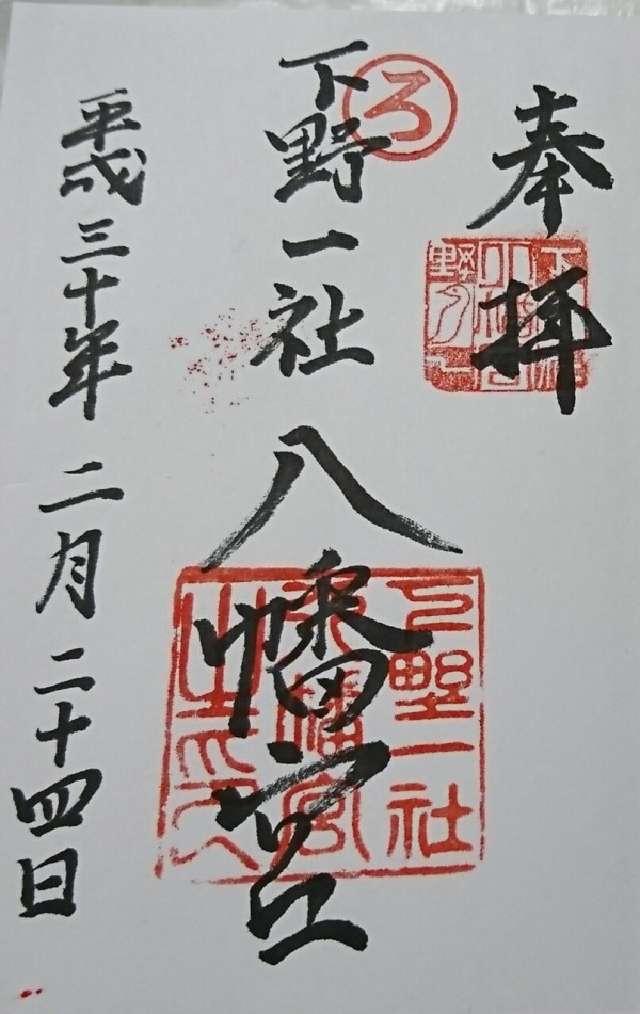 奉拝
ろ
下野一社
八幡宮
下野一社
八幡宮
之印
平成三十年二月二十四日